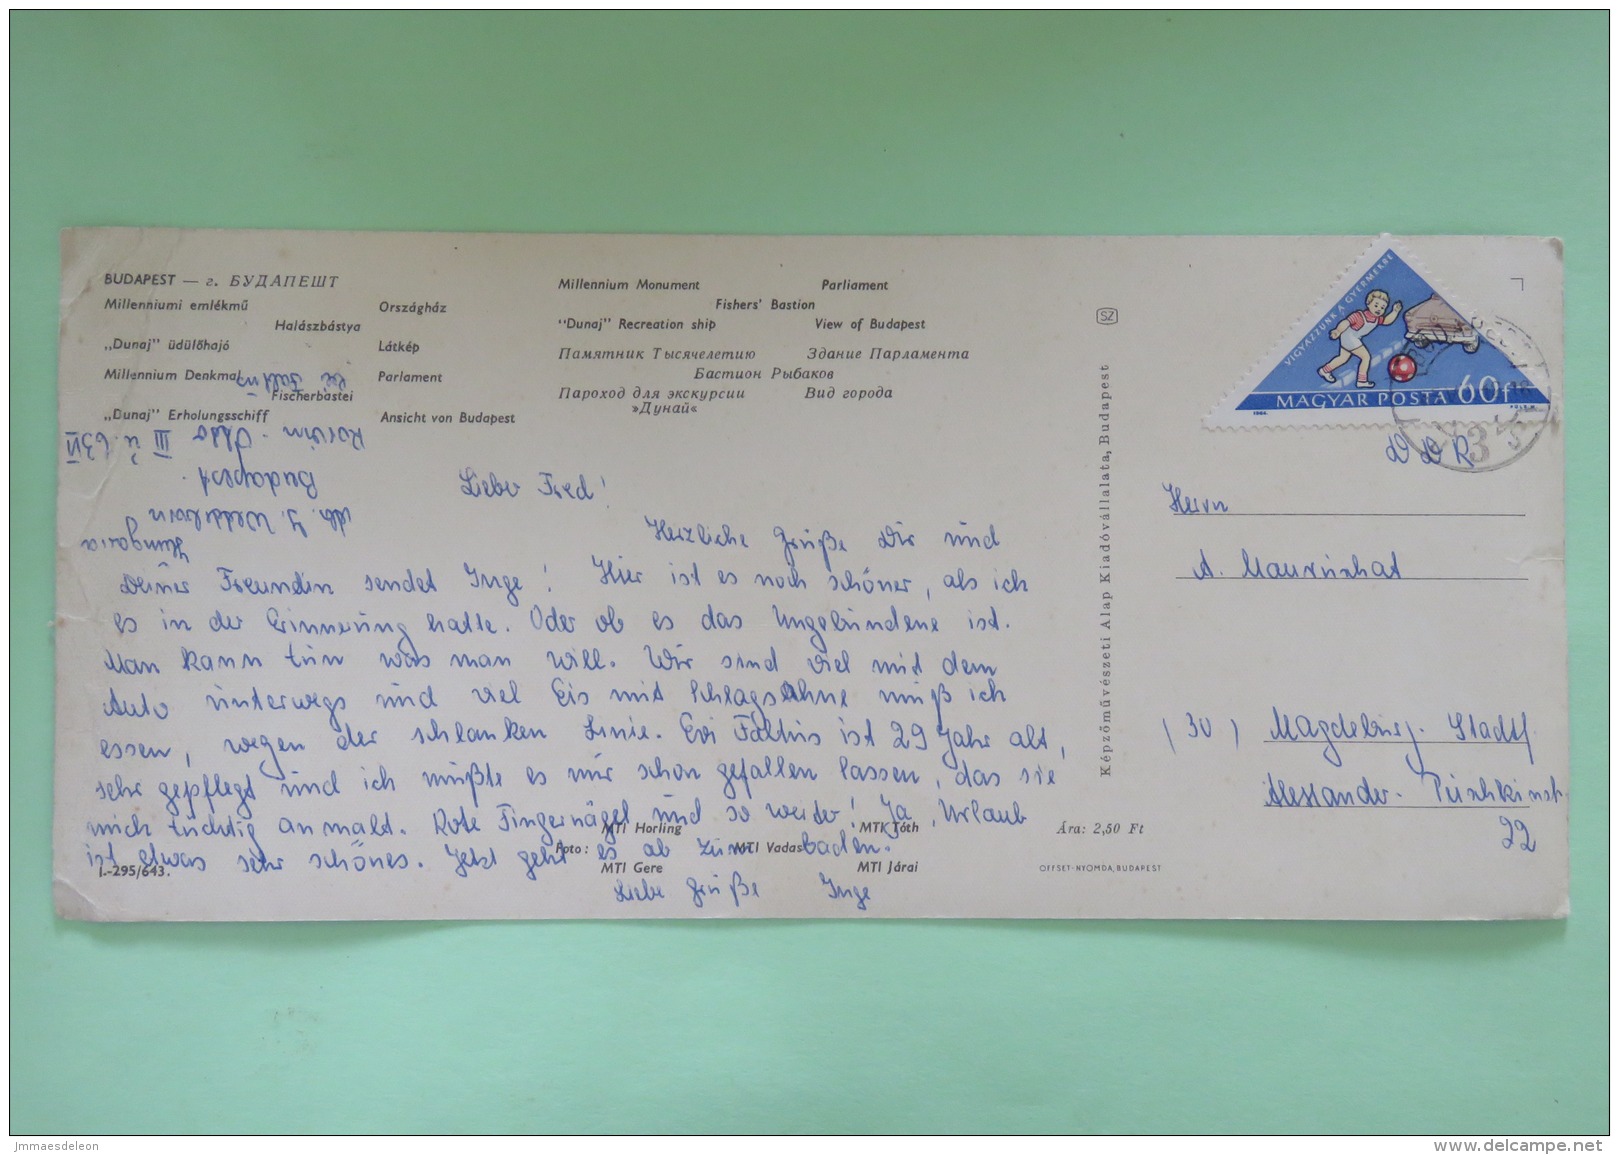 BUDAPEST — г. БУДАПЕШТ
Millenniumi emlékmű Országház
Halászbástya
„Dunaj" üdülőhajó Látkép
Millennium Denkmal Parlament
Fischerbastei
„Dunaj" Erholungsschiff Ansicht von Budapest
Millennium Monument Parliament
Fishers' Bastion
"Dunaj" Recreation ship View of Budapest
Памятник Тысячелетию Здание Парламента
Бастион Рыбаков
Пароход для экскурсии Вид города
»Дунай«
bei Faltins
Budapest
Hungaria
Lieber Fred!
Herzliche Grüße Dir und
Deiner Freundin sendet Inge! Hier ist es noch schöner, als ich
es in der Erinnerung hatte. Oder ob es das Ungebundene ist.
Man kann tun was man will. Wir sind viel mit dem
Auto unterwegs und viel Eis mit Schlagsahne muß ich
essen, wegen der schlanken Linie. Evi Faltins ist 29 Jahr alt,
sehr gepflegt und ich mußte es mir schon gefallen lassen, das sie
mich tüchtig anmalt. Rote Fingernägel und so weiter! Ja, Urlaub
ist etwas sehr schönes. Jetzt geht es ab zum baden.
Liebe Grüße Inge
I.-295/643.
Foto:
MTI Horling
MTK Tóth
MTI Vadas
MTI Gere
MTI Járai
Ára: 2,50 Ft
OFFSET-NYOMDA, BUDAPEST
SZ
Képzőművészeti Alap Kiadóvállalata, Budapest
VIGYÁZZUNK A GYERMEKRE
MAGYAR POSTA 60f
1964
DDR
Herrn
A. Maurischat
(30) Magdeburg-Stadtf
Alexander-Puschkinstr.
22
Jmmaesdeleon
www.delcampe.net